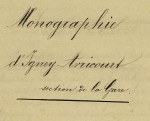 Monographie
d'Igney-Avricourt
section de la Gare